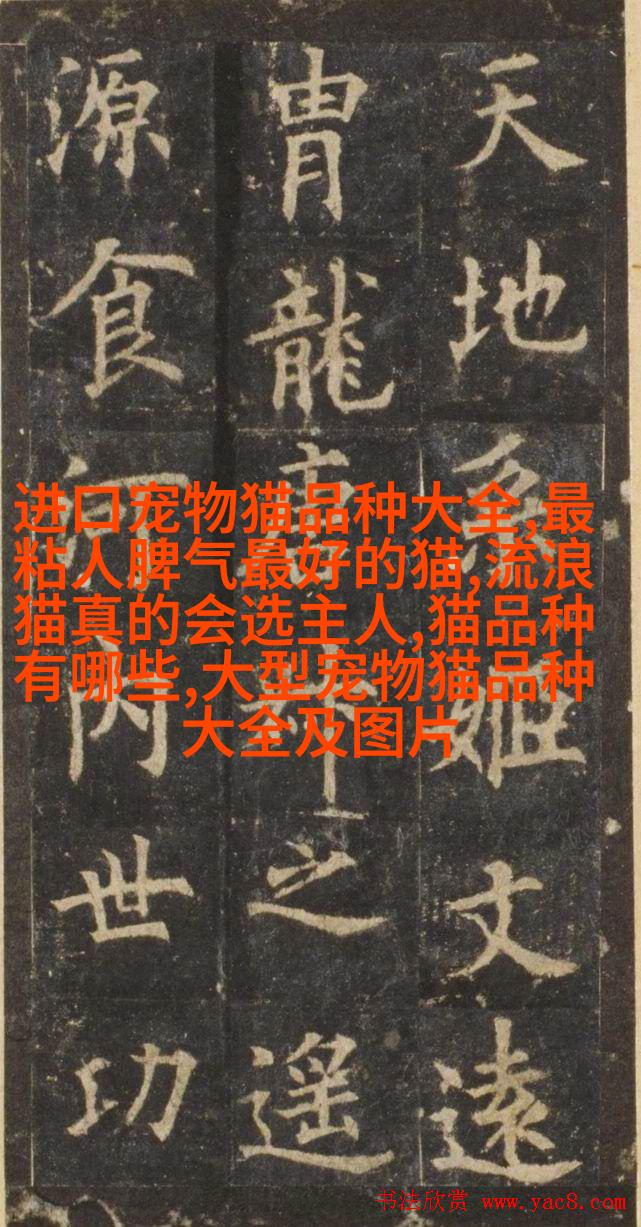 天地姬文遠
胄龍之遥
源食河内世功
进口宠物猫品种大全,最
粘人脾气最好的猫,流浪
猫真的会选主人,猫品种
有哪些,大型宠物猫品种
大全及图片
书法欣赏 www.yac8.com